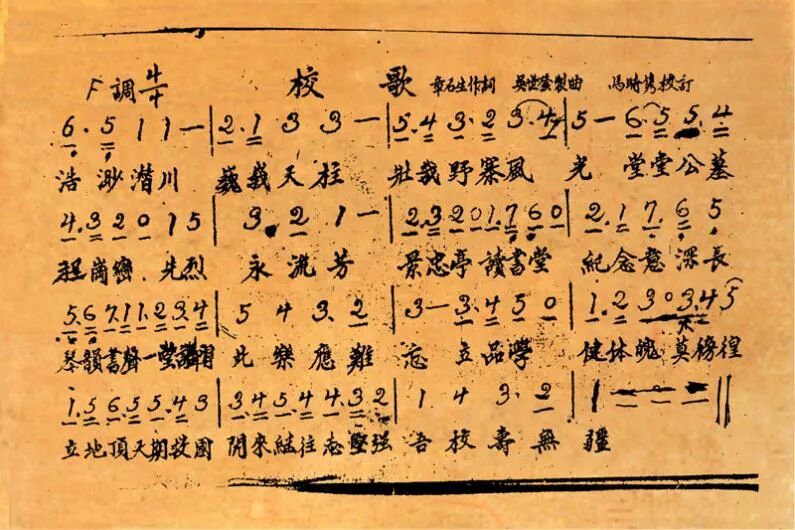 F調 4/4 校歌 章石生作詞 吳世瑩製曲 馬時雋校訂
6. 5 1 1 — | 2. 1 3 3 — | 5. 4 3. 2 3. 4 | 5 — 6. 5 5. 4
浩渺潜川 巍峩天柱 壯哉野寨風光 堂堂公墓
4. 3 2 0 1 5 | 3. 2 1 — | 2. 3 2 0 1. 7 6 0 | 2. 1 7. 6 5
程崗巒 先烈永流芳 景忠亭 讀書堂 紀念意深長
5. 6 7. 1 1. 2 3. 4 | 5 4 3. 2 | 3 — 3. 4 5 0 | 1. 2 3 0 3. 4 5
琴韻書聲一堂 此樂應難忘 立品學 健体魄 莫徬徨
1. 5 6. 5 5. 4 3 | 3. 4 5 4 4. 3 2 | 1 4 3. 2 | 1 — — —
立地頂天期救國 開來繼往志堅强 吾校壽無疆